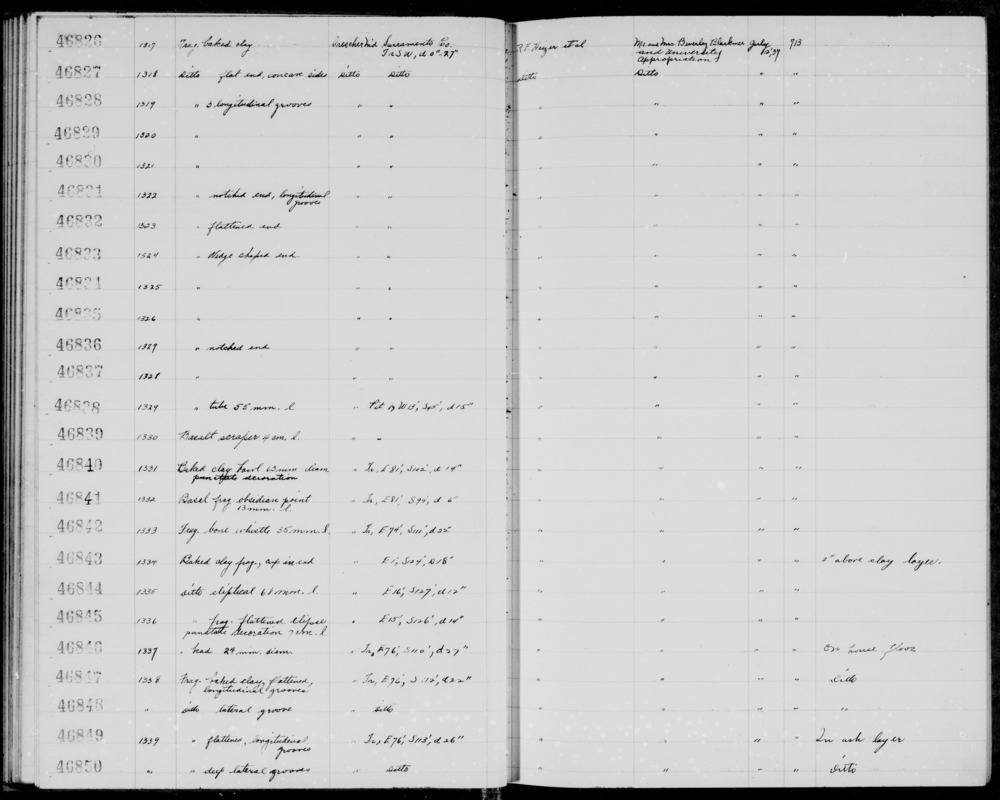 46826 1317 Frag. baked clay Drescher M'd Sacramento Co. R.F. Heizer et al Mr. and Mrs. Beverly Blackmer July 913
Tr SW, d 0"-27" and University 10, '39
Appropriation
46827 1318 Ditto flat end, concave sides Ditto Ditto Ditto Ditto
46828 1319 " 3 longitudinal grooves " " " " " "
46829 1320 " " " " " " "
46830 1321 " " " " " " "
46831 1322 " notched end, longitudinal " " " " " "
grooves
46832 1323 " flattened end " " " " " "
46833 1324 " Wedge shaped end " " " " " "
46834 1325 " " " " " " "
46835 1326 " " " " " " "
46836 1327 " notched end " " " " " "
46837 1328 " " " " " " "
46838 1329 " tube 55 mm. l " Pit W 13', S45', d 15" " " " "
46839 1330 Basalt scraper 4 cm. l. " " " " " "
46840 1331 Baked clay bowl 63 mm diam " Tr, E 81', S102', d 14" " " " "
punctate decoration
46841 1332 Basal frag obsidian point " Tr, E81', S99', d 6" " " " "
13 mm. l.
46842 1333 Frag. bone whistle 35 mm. l. " Tr, E 74', S111', d 22" " " " "
46843 1334 Baked clay frag., in end " E1', S24', d 18" " " " " 2" above clay layer.
46844 1335 Ditto eliptical 66 mm. l. " E16', S127', d 12" " " " "
46845 1336 " frag. flattened elipse " E15', S126', d 14" " " " "
punctate decoration 7 cm. l
46846 1337 " bead 24 mm. diam. " Tr, E76', S110', d 27" " " " " On house floor
46847 1338 Frag. baked clay, flattened, " Tr, E76', S 112', d 22" " " " " Ditto
longitudinal grooves
46848 " Ditto lateral groove " Ditto " " " " "
46849 1339 " flattened, longitudinal " Tr, E76', S113', d 26" " " " " In ash layer
grooves
46850 " " deep lateral grooves " Ditto " " " " Ditto